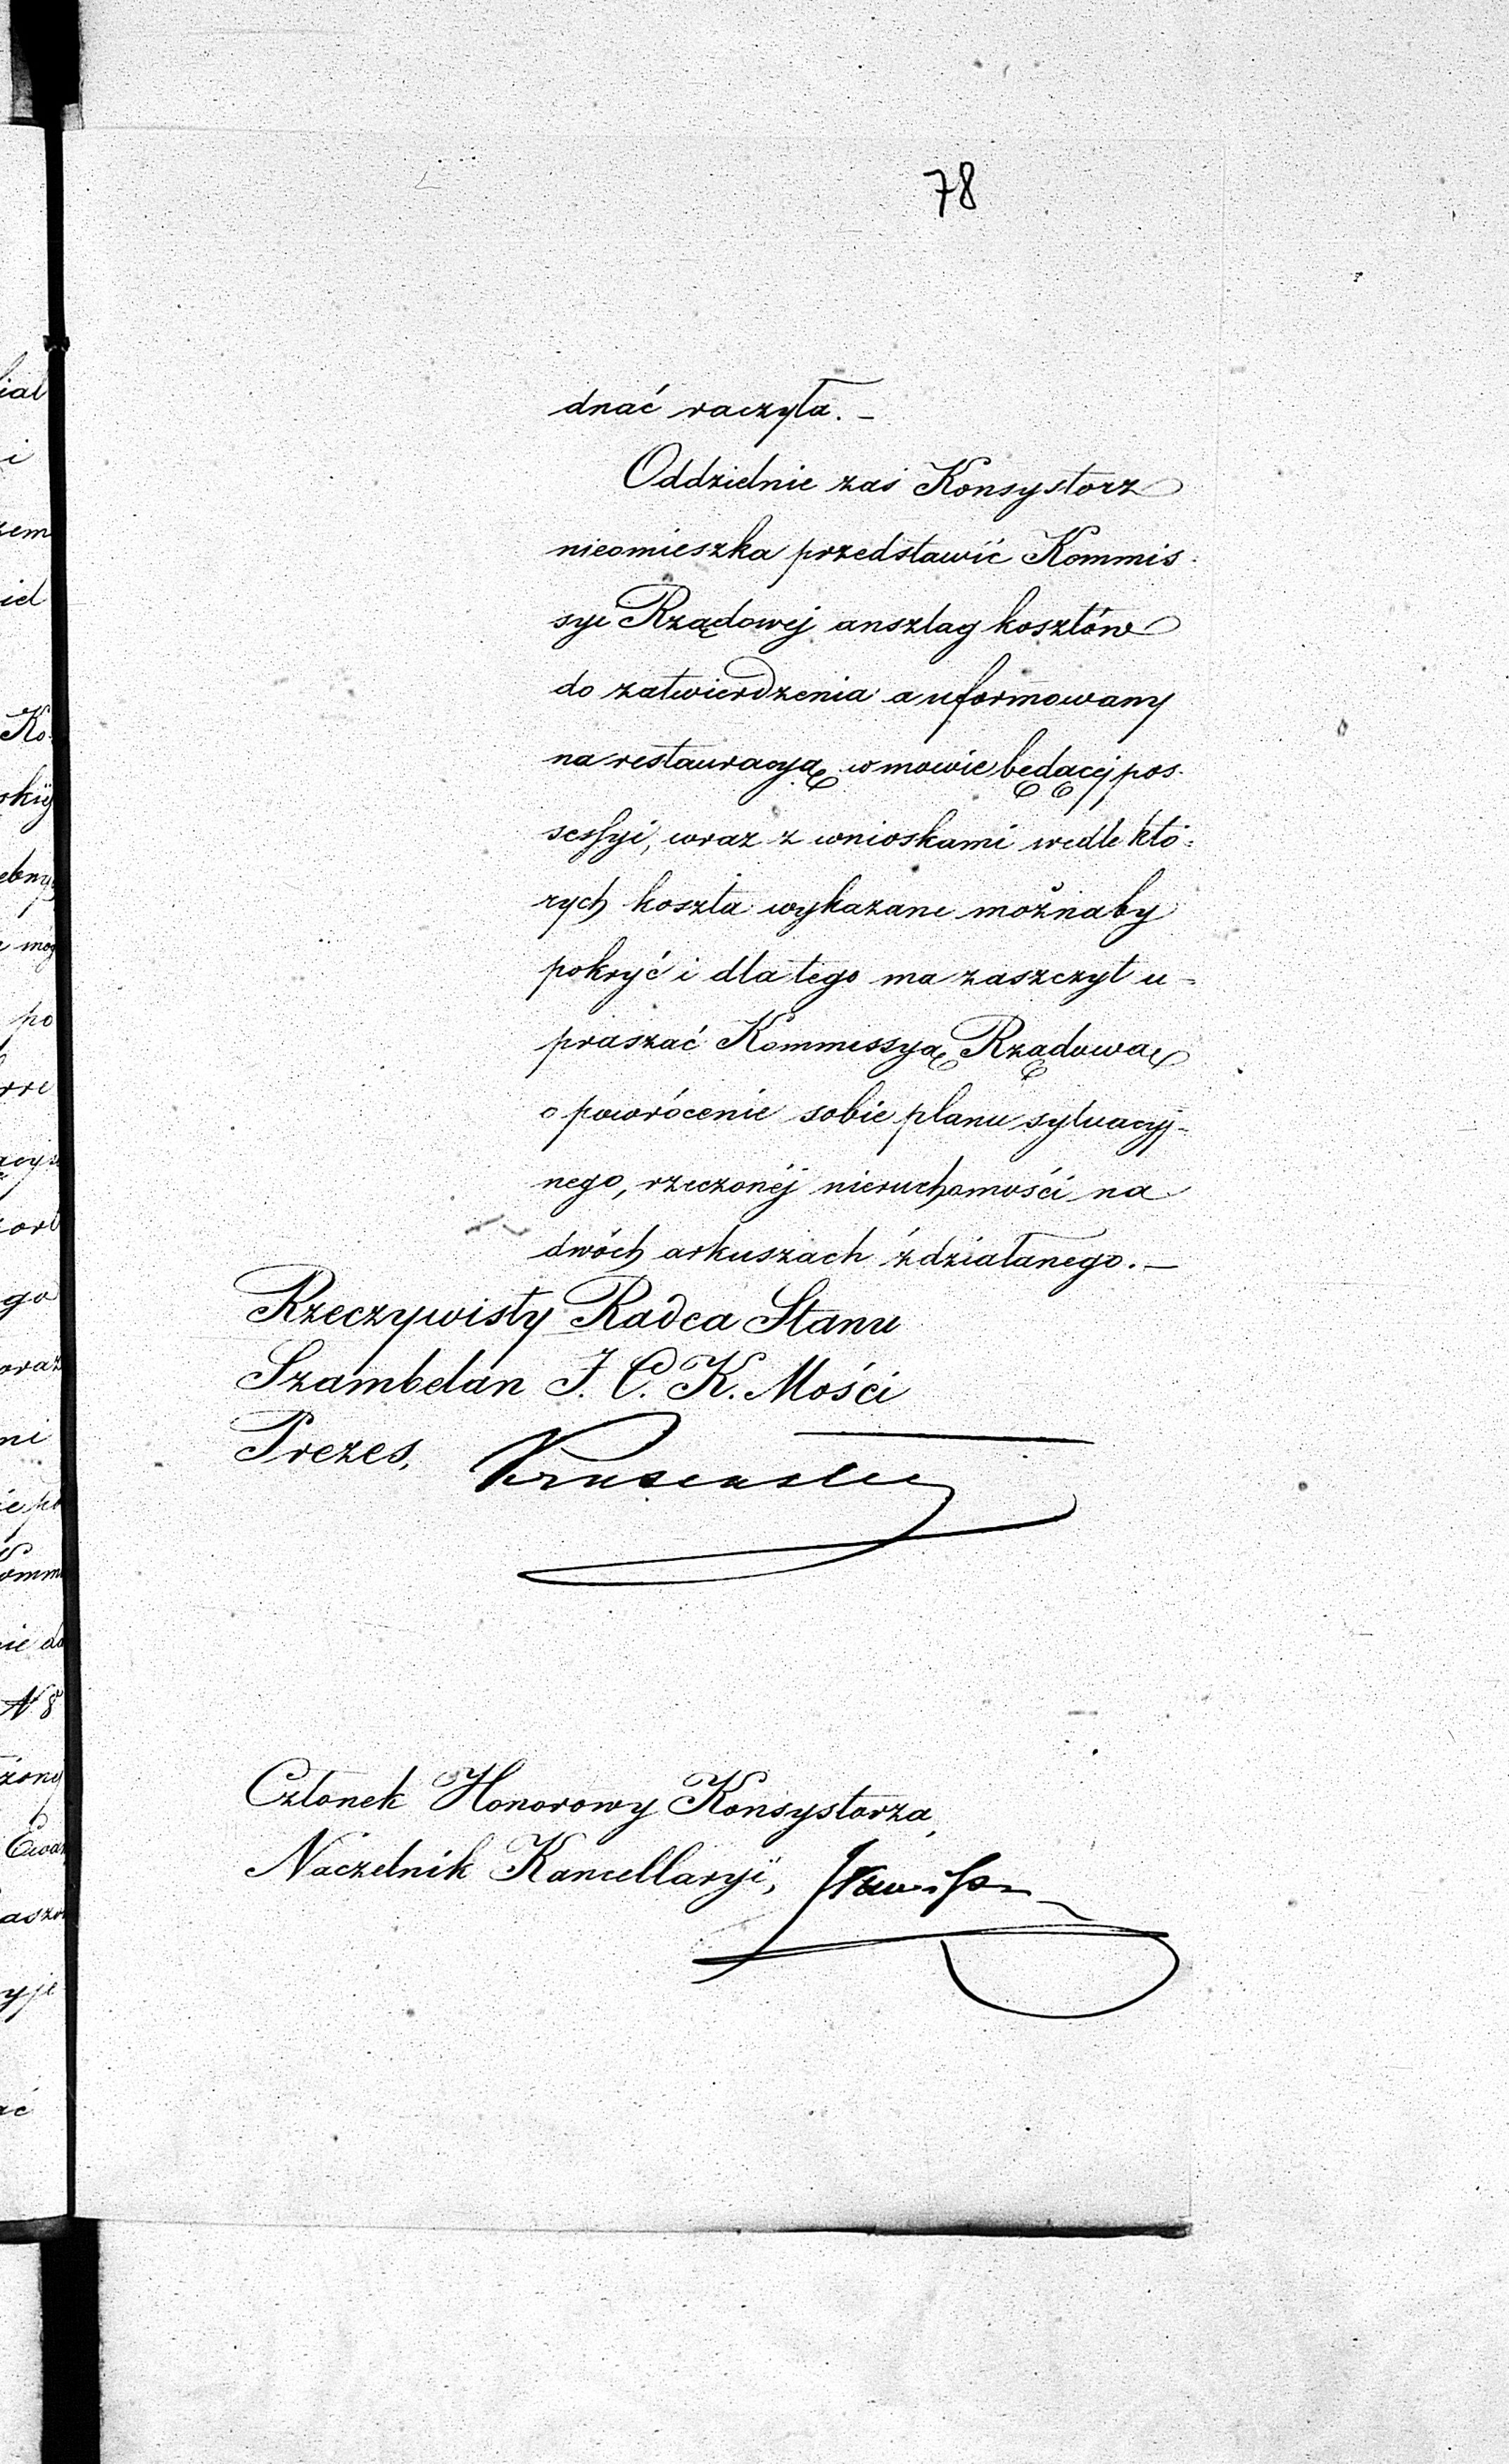 78
dnać raczyła. –
Oddzielnie zaś Konsystorz
nieomieszka przedstawić Kommis-
syi Rządowej anszlag kosztów
do zatwierdzenia a uformowany
na restauracyą w mowie będącej pos-
sessyi, wraz z wnioskami wedle któ-
rych koszta wykazane możnaby
pokryć i dla tego ma zaszczyt u-
praszać Kommissyą Rządową
o powrócenie sobie planu sytuacyj-
nego, rzeczonéj nieruchomości na
dwóch arkuszach zdziałanego. –
Rzeczywisty Radca Stanu
Szambelan J. C. K. Mości
Prezes,
Członek Honorowy Konsystorza,
Naczelnik Kancellaryi,